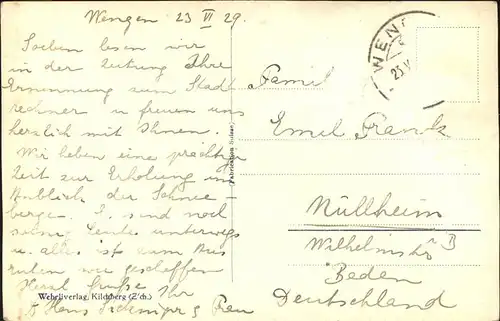 Wengen 23 VI 29.
Soeben lesen wir
in der Zeitung Ihre
Ernennung zum Stadt
rechner u freuen uns
herzlich mit Ihnen.
Wir haben eine prächtige
Zeit zur Erholung im
Anblick der Schnee-
berge. E. sind noch
Leute unterwegs
u. alles ist zum Aus
ruhen wie geschaffen
Herzl Grüße Ihr
Hans & Frau
Wehrliverlag, Kilchberg (Zch.)
Fabrication Suisse
WEN
23 V
Famil
Emil Frank
Müllheim
Baden
Deutschland